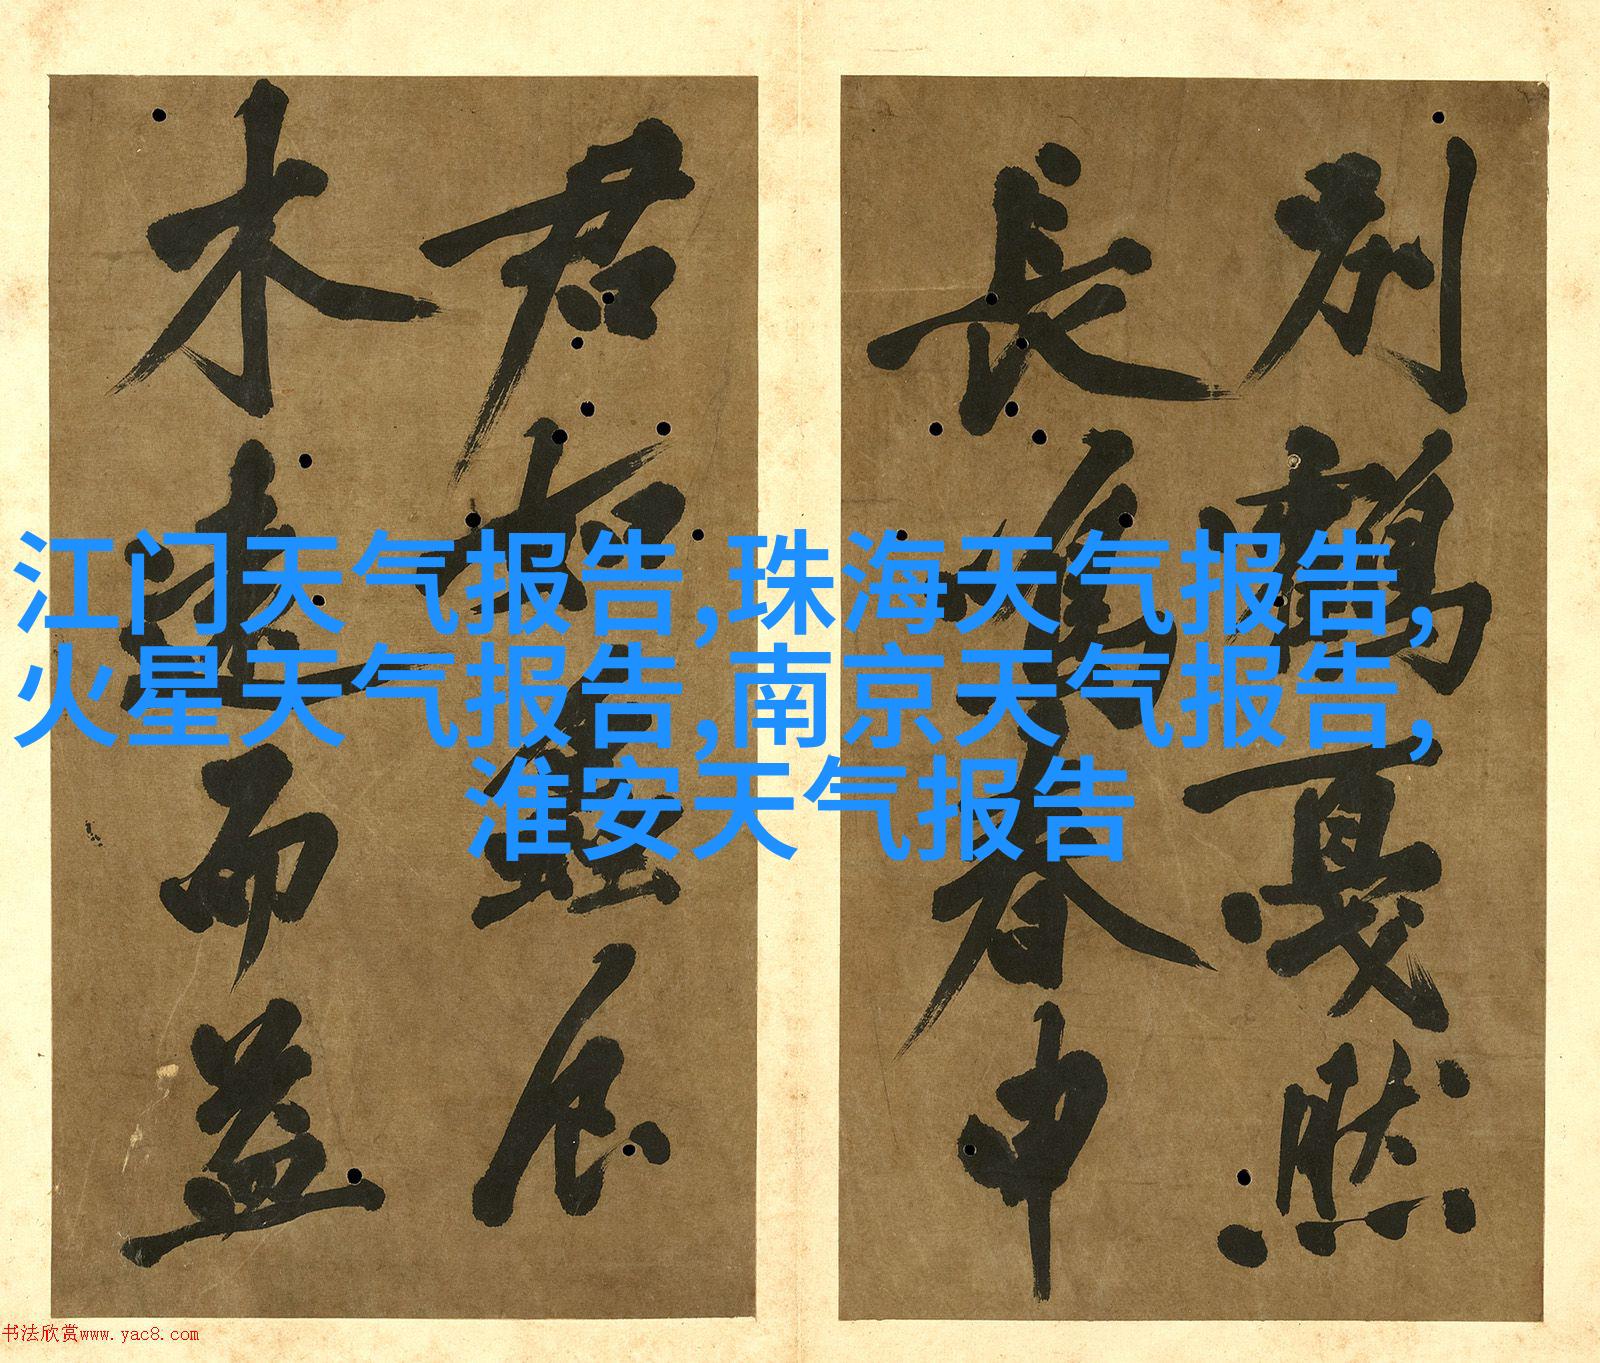 江门天气报告,珠海天气报告,
火星天气报告,南京天气报告,
淮安天气报告
别鶴戛然
長鳴春申
君
木遠而益
书法欣赏www.yac8.com